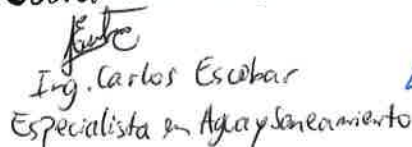 Ing. Carlos Escobar
Especialista en Agua y Saneamiento